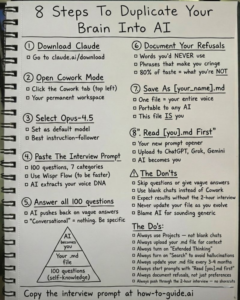 8 Steps To Duplicate Your
Brain Into AI
1 Download Claude
Go to claude.ai/download
2 Open Cowork Mode
Click the Cowork tab (top left)
Your permanent workspace
3 Select Opus-4.5
Set as default model
Best instruction-follower
4 Paste The Interview Prompt
100 questions, 7 categories
Use Wispr Flow (to be faster)
AI extracts your voice DNA
5 Answer all 100 questions
AI pushes back on vague answers
"Conversational" = nothing. Be specific
AI
becomes
you
Your .md
file
100 questions
(self-knowledge)
6 Document Your Refusals
Words you'd NEVER use
Phrases that make you cringe
80% of taste = what you're NOT
7 Save As [your_name].md
One file = your entire voice
Portable to any AI
This file IS you
8 "Read [you].md First"
Your new prompt opener
Upload to ChatGPT, Grok, Gemini
AI becomes you
⚠ The Don'ts
Skip questions or give vague answers
Use blank chats instead of Cowork
Expect results without the 2-hour interview
Never update your file as you evolve
Blame AI for sounding generic
The Do's:
Always use Projects – not blank chats
Always upload your .md file for context
Always turn on "Extended Thinking"
Always turn on "Search" to avoid hallucinations
Always update your .md file every 3-6 months
Always start prompts with "Read [you].md first"
Always document refusals, not just preferences
Always push through the 2-hour interview – no shortcuts
Copy the interview prompt at how-to-guide.ai